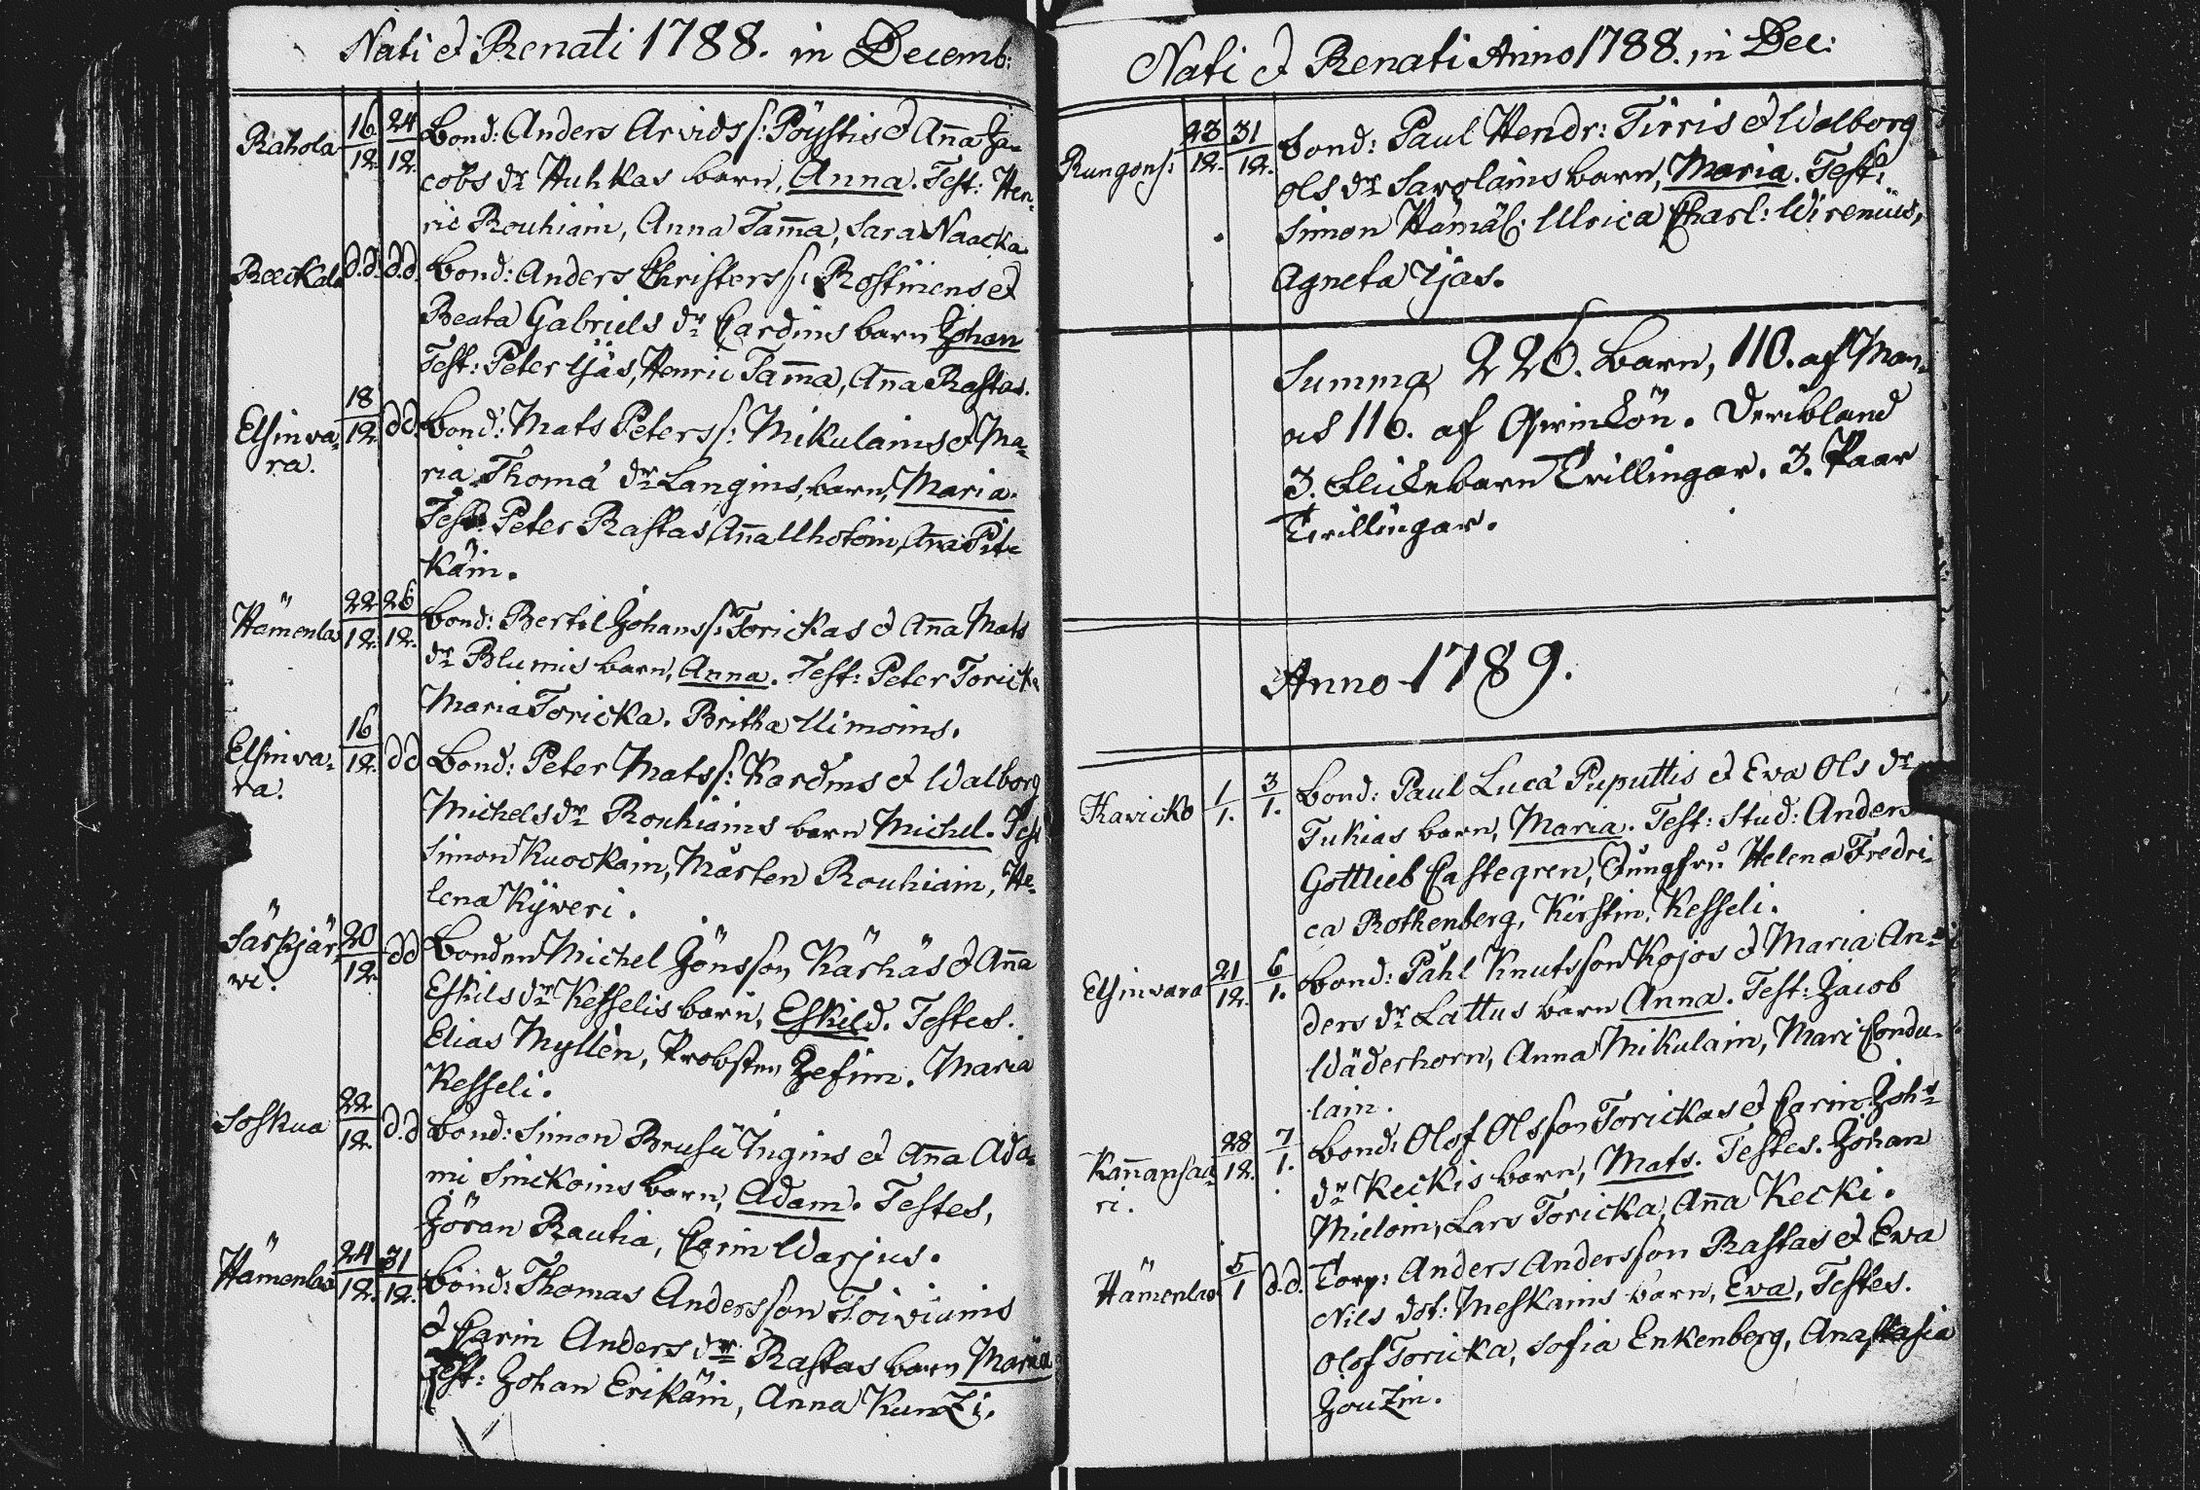 Nati et Renati 1788. in Decemb:
Rahola 16/12. 24/12. Bond: Anders Arvids s: Pöystis et Aña Ja-
cobs dr Huhkas barn, Anna. Test: Hen-
ric Rouhiain, Anna Tam̃a, Sara Naacka
d.d. d.d. Bond: Anders Christers s: Rostiniens et
Beata Gabriels dr Cardins barn Johan
Test: Peter Ijäs, Henric Tam̃a, Aña Rastas.
Elsinva- 18/12. dd. Bond: Mats Peters s: Mikulains et Ma-
ra. ria Thomæ dr Langins, barn, Maria.
Test: Peter Rastas, Aña Uhotoin, Aña Pit-
käin.
Hämenlax 22/12. 26/12. Bond: Bertil Johans s: Torickas et Aña Mats
dr Blumis barn, Anna. Test: Peter Toricka
Maria Toricka. Britha Uimoins.
Elsinva- 16/12. dd Bond: Peter Mats s: Kardins et Walborg
ra. Michels dr Rouhiains barn Michel. Test
Simon Kuockain, Mårten Rouhiain, He-
lena Kyweri.
Särkjär- 20/12. dd Bonden Michel Jönsson Kärhäs et Aña
wi. Eskils dr Kesselis barn, Eskild. Testes.
Elias Myllén, Probsten Jefim. Maria
Kesseli.
Soskua 22/12. d.d Bond: Simon Brusiu Ingins et Aña Ada-
mi Sinckoins barn, Adam. Testes,
Jöran Rautia, Carin Warjus.
Hämenlax 24/12. 31/12. Bond: Thomas Andersson Toiviains
et Carin Anders dr Rastas barn Maria
Test: Johan Erikäin, Anna Kunzi.
Nati et Renati Anno 1788. in Dec:
Rungons: 23/12. 31/12. Bond: Paul Hendr: Tirris et Walborg
Ols dr Sarolains barn, Maria. Test:
Simon Hämäl: Ulrica Charl: Wirenius,
Agneta Ijäs.
Summa 226. barn, 110. af Man-
116. af Qwinkön. Deribland
3. flickebarn Trillingar. 3. Paar
Tvillingar.
Anno 1789.
Kavicko 1/1. 3/1. Bond: Paul Lucæ Puputtis et Eva Ols dr
Tukias barn, Maria. Test: Stud: Anders
Gottlieb Castegren, Jungfru Helena Fredri-
ca Rothenberg, Kirstin Kesseli.
Elsinvara 21/12. 6/1. Bond: Påhl Knutsson Kojos et Maria An-
ders dr Lattus barn Anna. Test: Jacob
Wäderhorn, Anna Mikulain, Mari Condu-
lain.
Kañansaa- 28/12. 7/1. Bond: Olof Olsson Torickas et Carin Joh:
ri. dr Keckis barn, Mats. Testes. Johan
Mieloin, Lars Toricka, Aña Kecki.
Hämenlax 5/1 d.d. Torp: Anders Andersson Rastas et Ewa
Nils dot: Meskains barn, Eva, Testes.
Olof Toricka, Sofia Enkenberg, Anastasia
Jouzin.